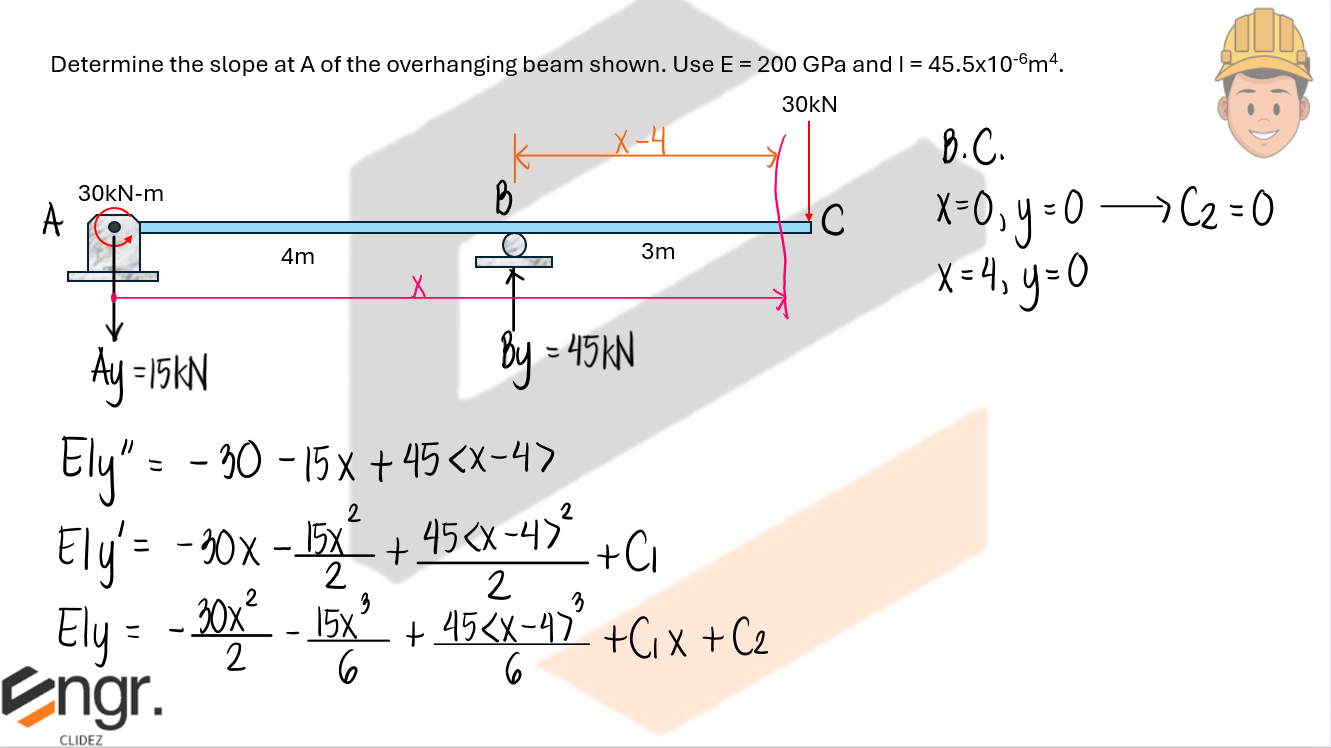 Determine the slope at A of the overhanging beam shown. Use E = 200 GPa and I = 45.5x10⁻⁶m⁴.
30kN
x-4
B.C.
30kN-m
B
A
C
x=0, y=0 ⟶ C₂ = 0
4m
3m
x
x=4, y=0
Ay =15kN
By = 45kN
EIy'' = -30 -15x + 45<x-4>
EIy' = -30x - 15x²/2 + 45<x-4>²/2 + C₁
EIy = -30x²/2 - 15x³/6 + 45<x-4>³/6 + C₁x + C₂
Engr.
CLIDEZ